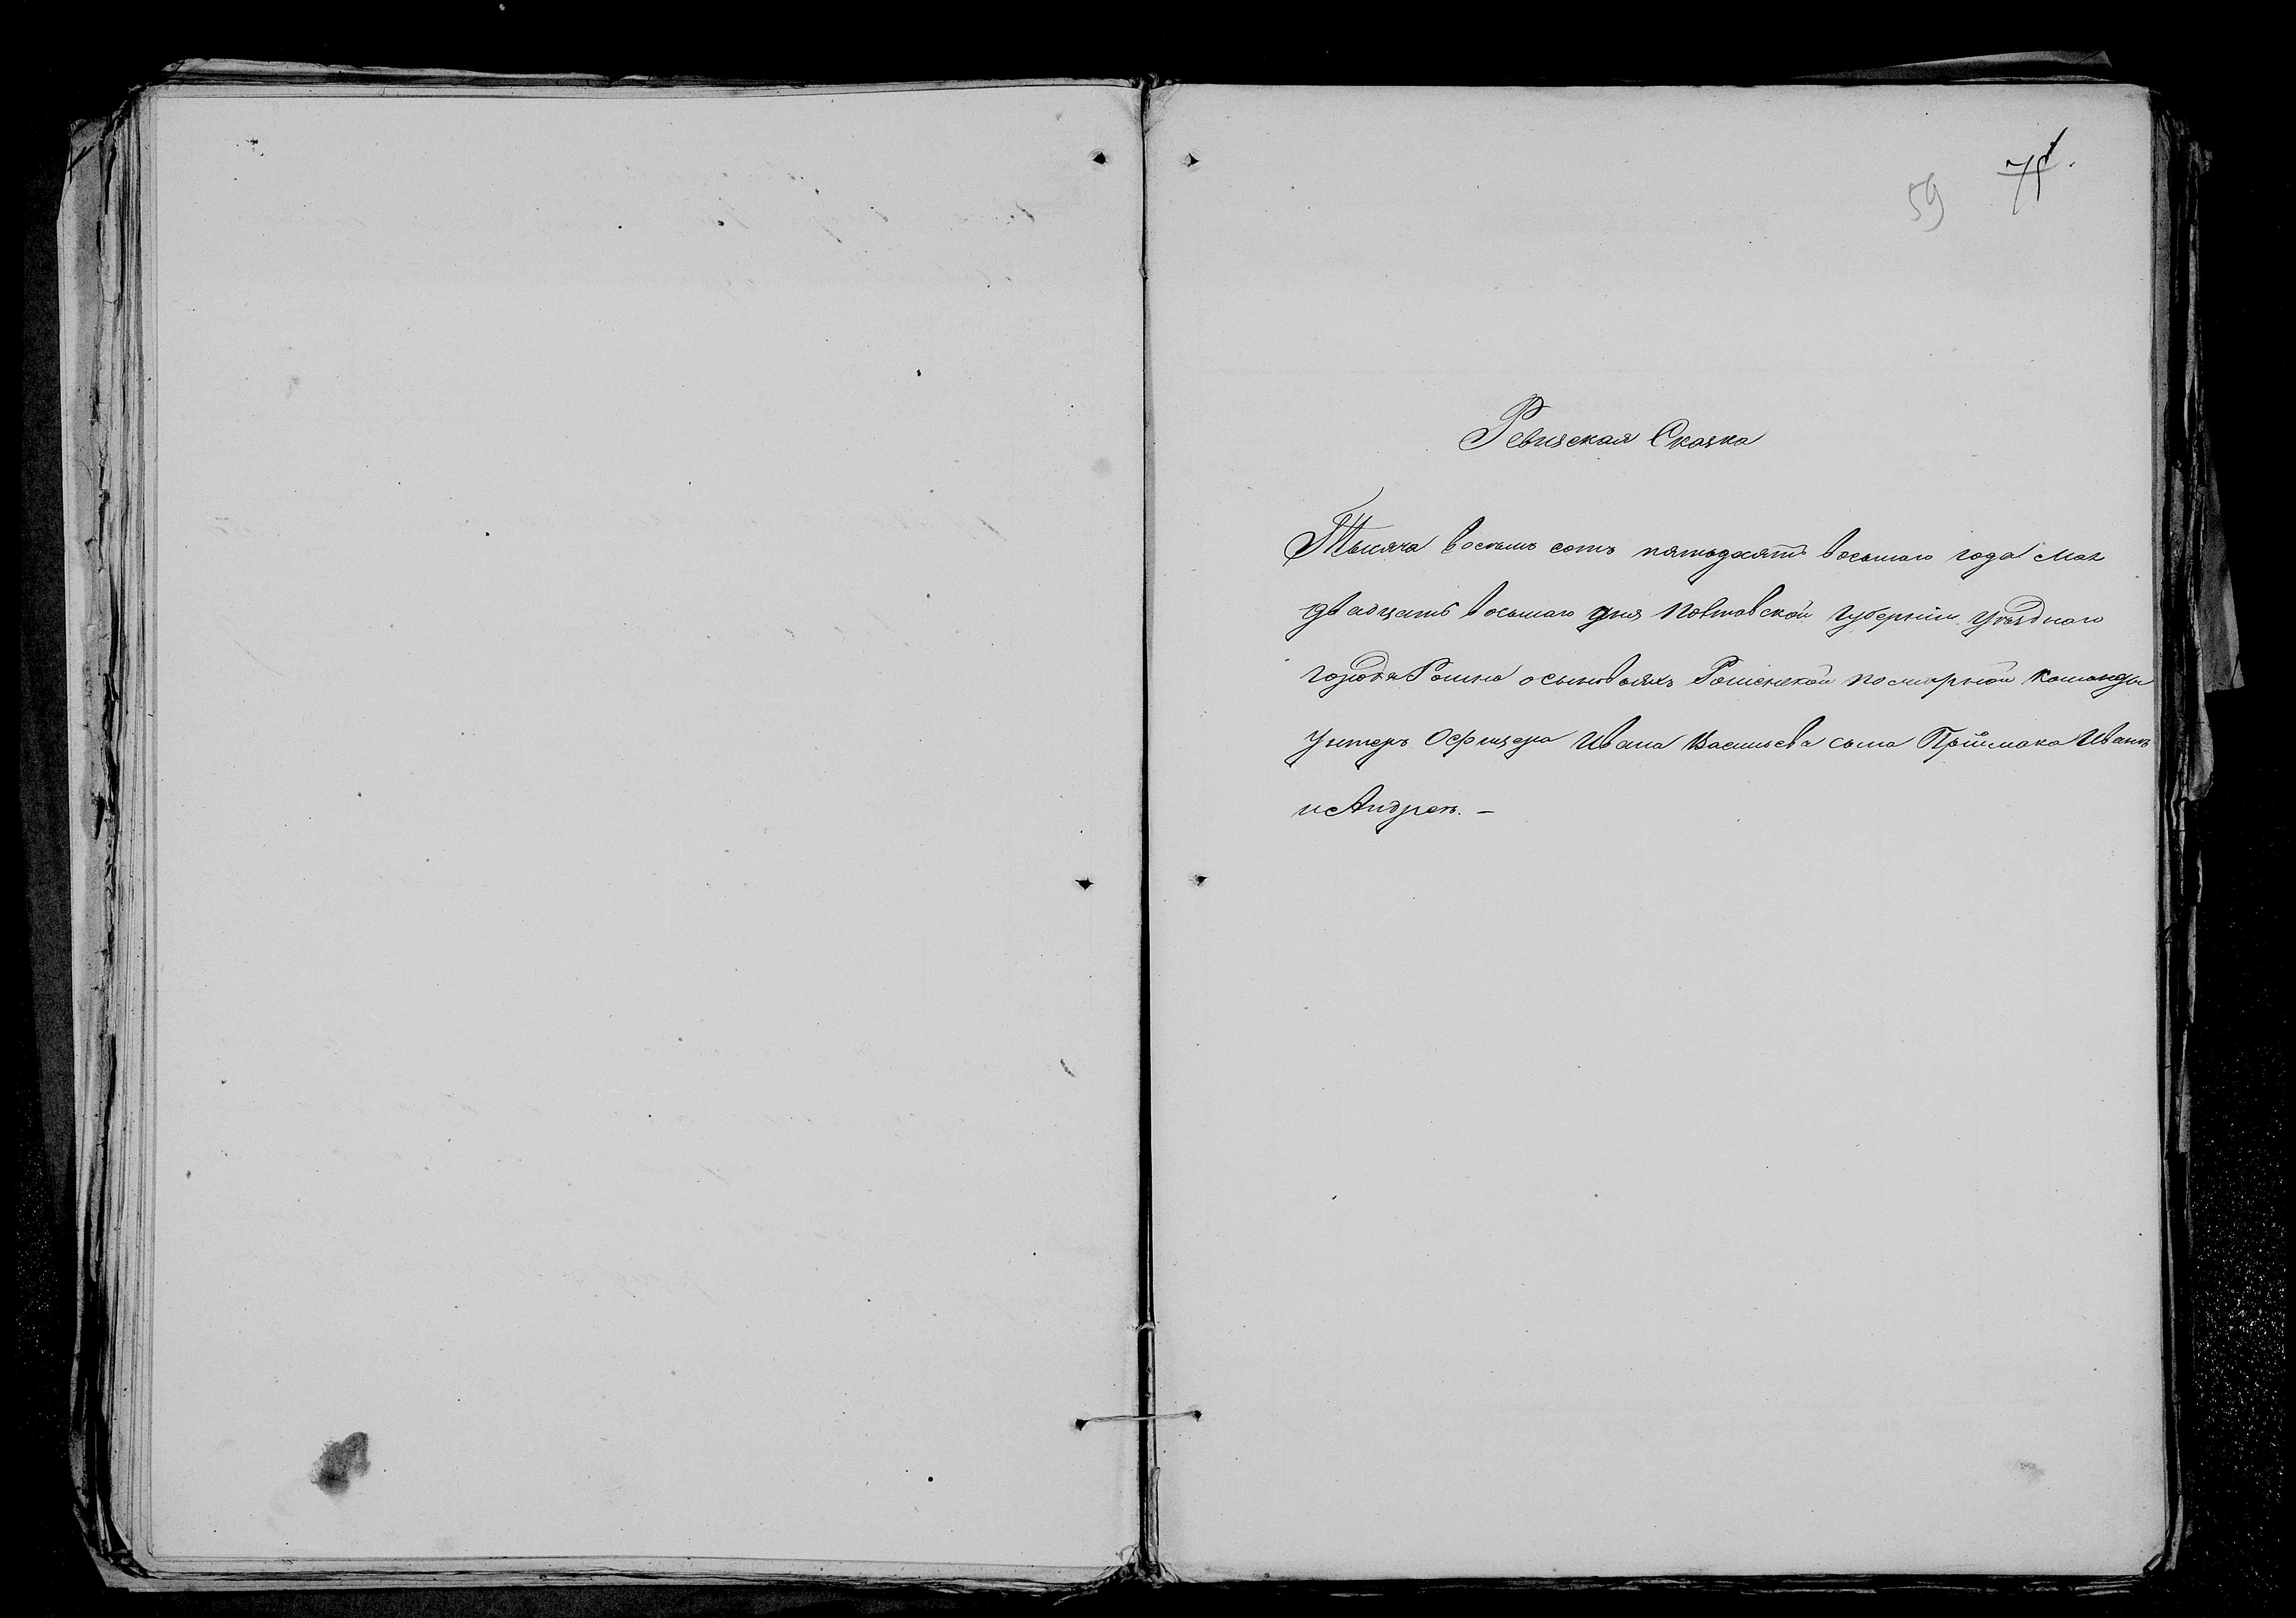 71.
59
Ревизская Сказка
Тысяча восемь сотъ пятьдесятъ восьмаго года Мая
двадцать восьмаго дня Полтавской Губерніи Уѣзднаго
города Ромна о сыновьяхъ Роменской пожарной Команды
Унтеръ Офицера Ивана Васильева сына Приймака Иванѣ
и Андреѣ. —